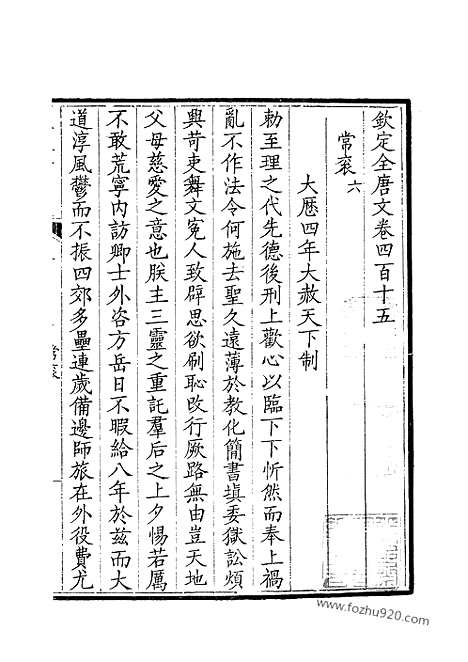 欽定全唐文卷四百十五
常袞六
大厯四年大赦天下制
勅至理之代先德後刑上歡心以臨下下忻然而奉上禍
亂不作法令何施去聖久遠薄於教化簡書塡委獄訟煩
興苛吏舞文寃人致辟思欲刷恥改行厥路無由豈天地
父母慈愛之意也朕主三靈之重託羣后之上夕惕若厲
不敢荒寧內訪卿士外咨方岳日不暇給八年於兹而大
道淳風鬱而不振四郊多壘連歲備邊師旅在外役費尤
常袞
www.fozhu920.com